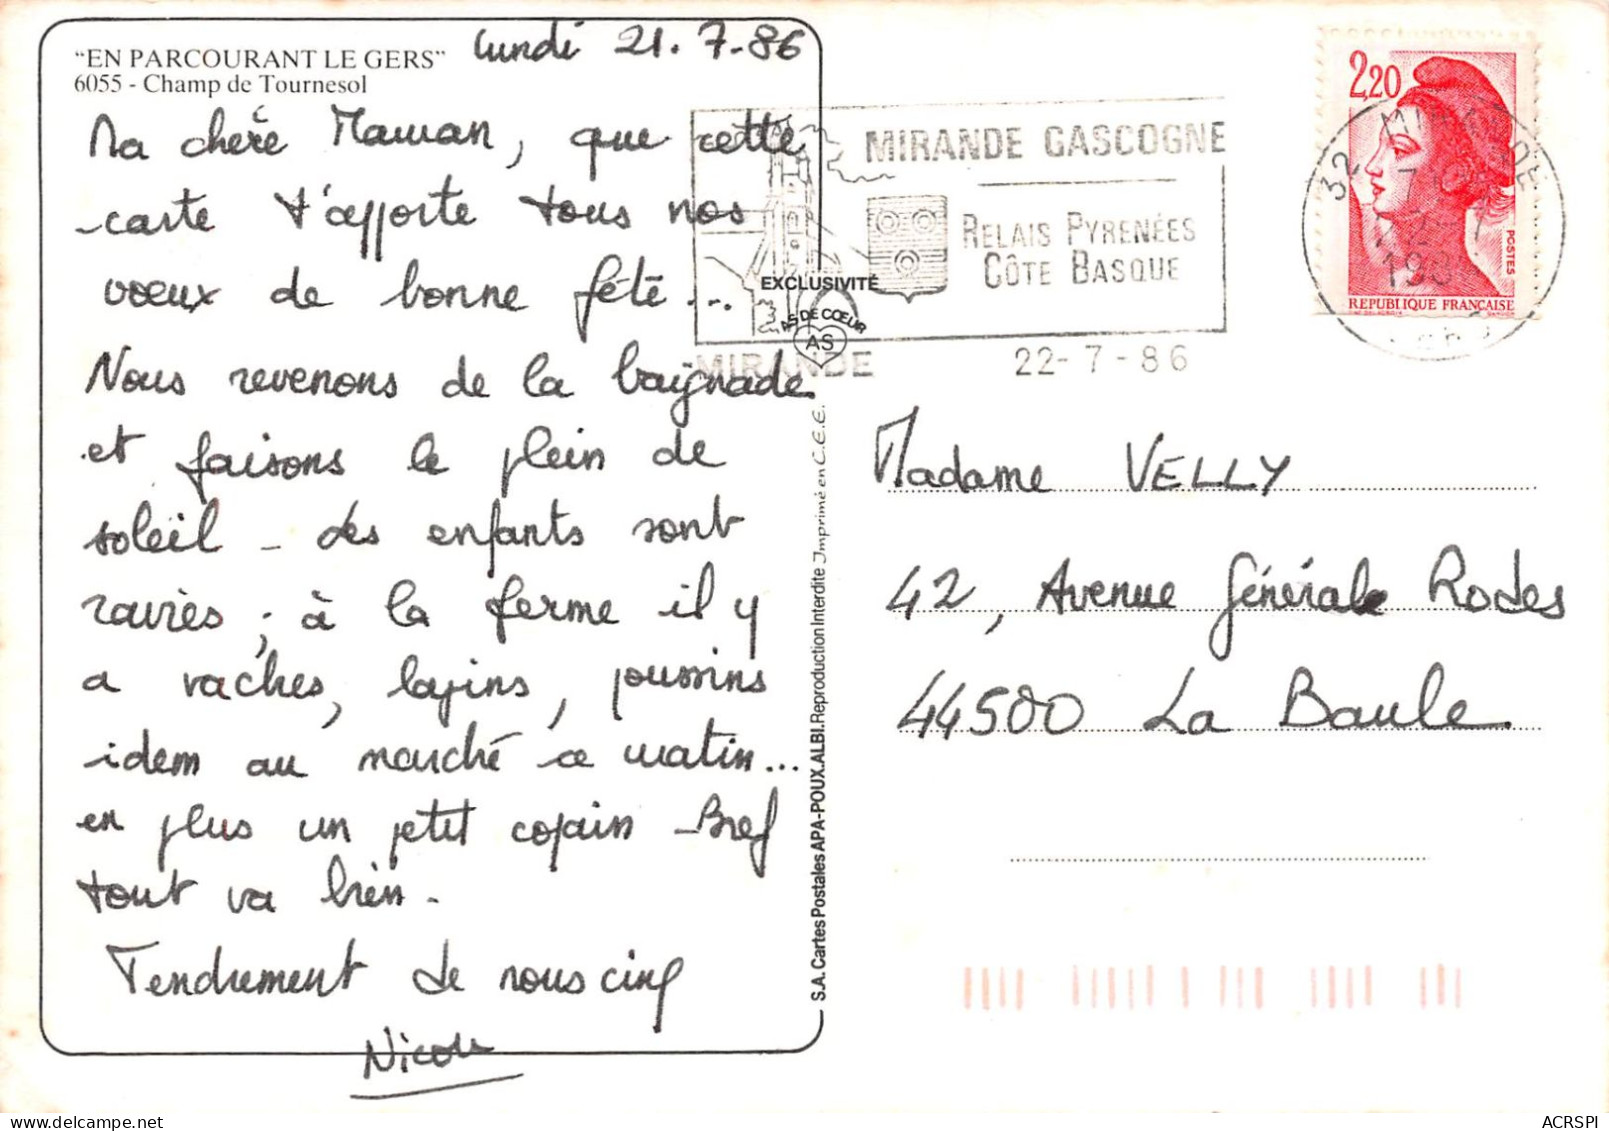 "EN PARCOURANT LE GERS"
6055 - Champ de Tournesol
lundi 21.7.86
Ma chère Maman, que cette
carte t'apporte tous nos
voeux de bonne fête...
Nous revenons de la baignade
et faisons le plein de
soleil - des enfants sont
raviès ; à la ferme il y
a vaches, lapins, poussins
idem au marché ce matin...
en plus un petit copain - Bref
tout va bien.
Tendrement de nous cinq
Nicole
EXCLUSIVITÉ
AS DE CŒUR
AS
S.A. Cartes Postales APA-POUX. ALBI. Reproduction Interdite Imprimé en C.E.E.
MIRANDE GASCOGNE
RELAIS PYRENÉES
CÔTE BASQUE
MIRANDE
22-7-86
2,20
POSTES
REPUBLIQUE FRANCAISE
32 MIRANDE
Madame VELLY
42, Avenue Générale Rodes
44500 La Baule
ACRSPI